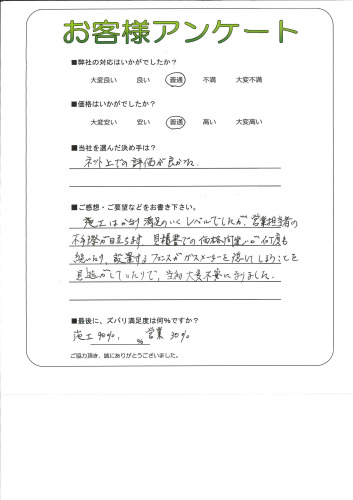 お客様アンケート
■弊社の対応はいかがでしたか?
大変良い 良い 普通 不満 大変不満
■価格はいかがでしたか?
大変安い 安い 普通 高い 大変高い
■当社を選んだ決め手は?
ネット上での評価が良かった。
■ご感想・ご要望などをお書き下さい。
施工はかなり満足のいくレベルでしたが、営業担当者の
不手際が目立ちます。見積書での価格間違いが何度も
続いたり、設置するフェンスがガスメーターを隠してしまうことを
見逃がしていたりで、当初大変不安になりました。
■最後に、ズバリ満足度は何%ですか?
施工 90%, % 営業 30%
ご協力頂き、誠にありがとうございました。